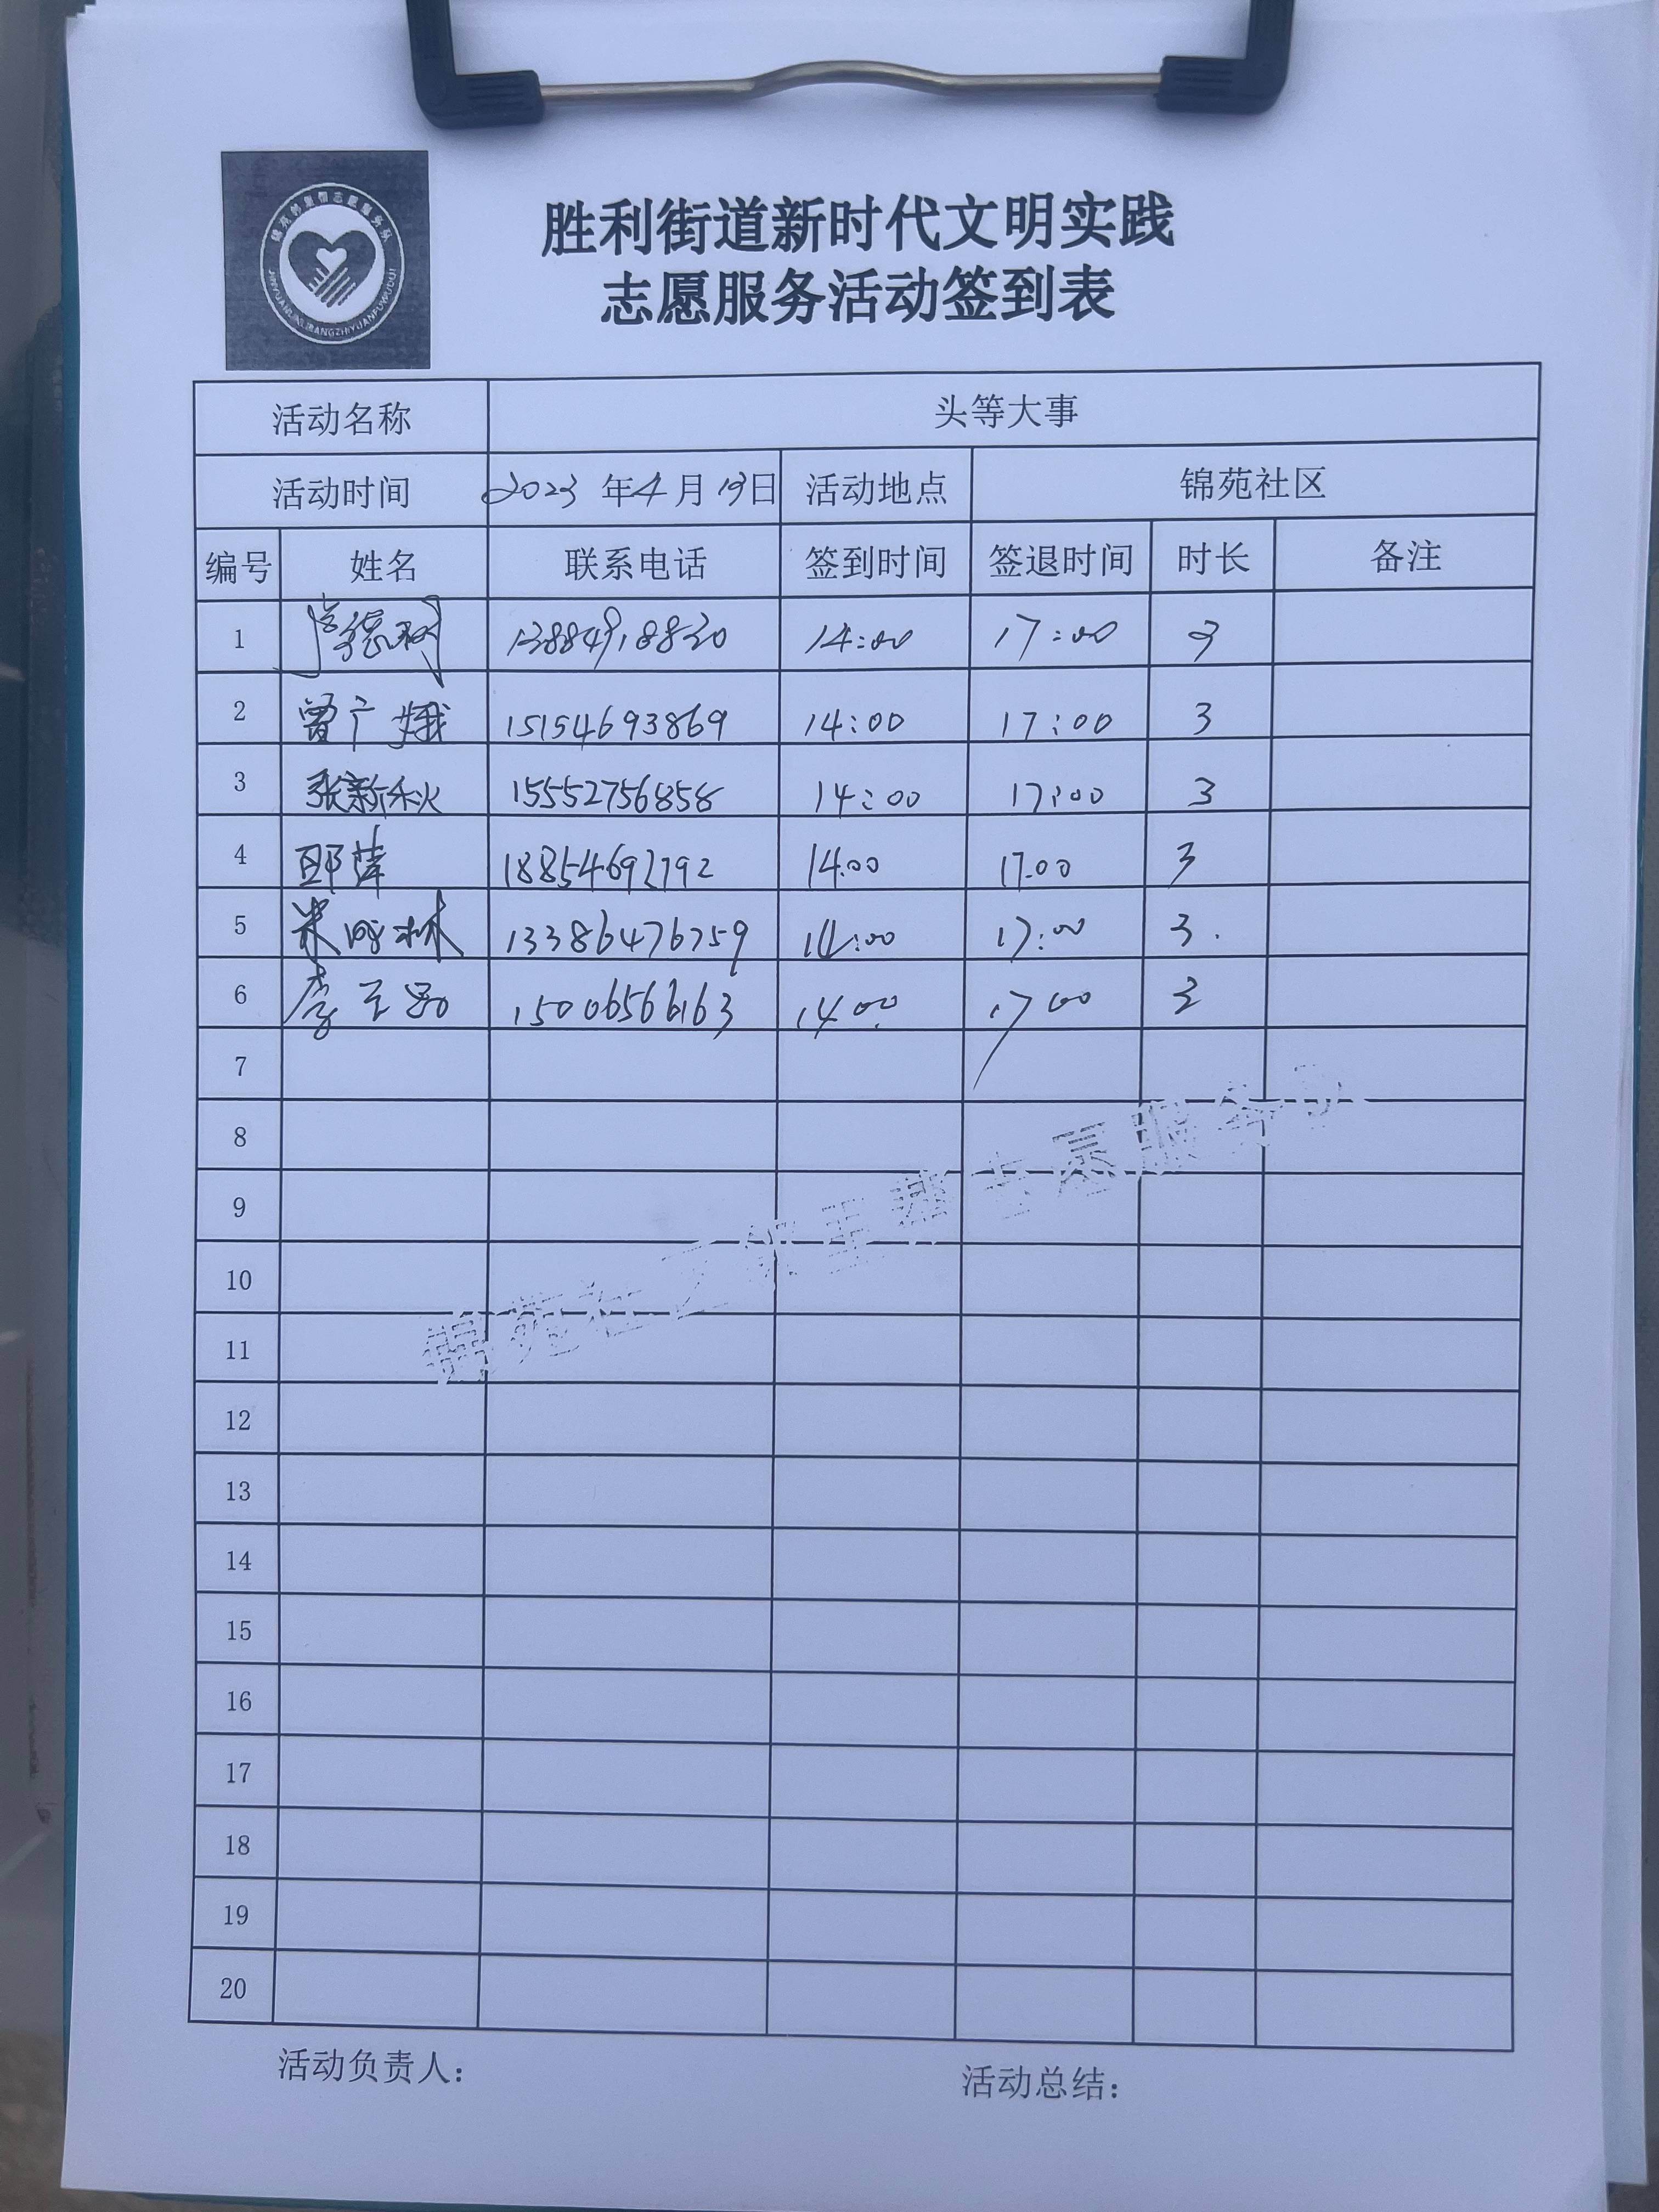 胜利街道新时代文明实践
志愿服务活动签到表
活动名称 头等大事
活动时间 2023年4月19日 活动地点 锦苑社区
编号 姓名 联系电话 签到时间 签退时间 时长 备注
1 13884918830 14:00 17:00 3
2 曾广娥 15154693869 14:00 17:00 3
3 张新秋 15552756858 14:00 17:00 3
4 萍 18854692792 14:00 17:00 3
5 林 13386476759 14:00 17:00 3.
6 15006566163 14 00 17 00 3
7
8
9
10
11
12
13
14
15
16
17
18
19
20
锦苑社区邻里帮志愿服务队
活动负责人: 活动总结: